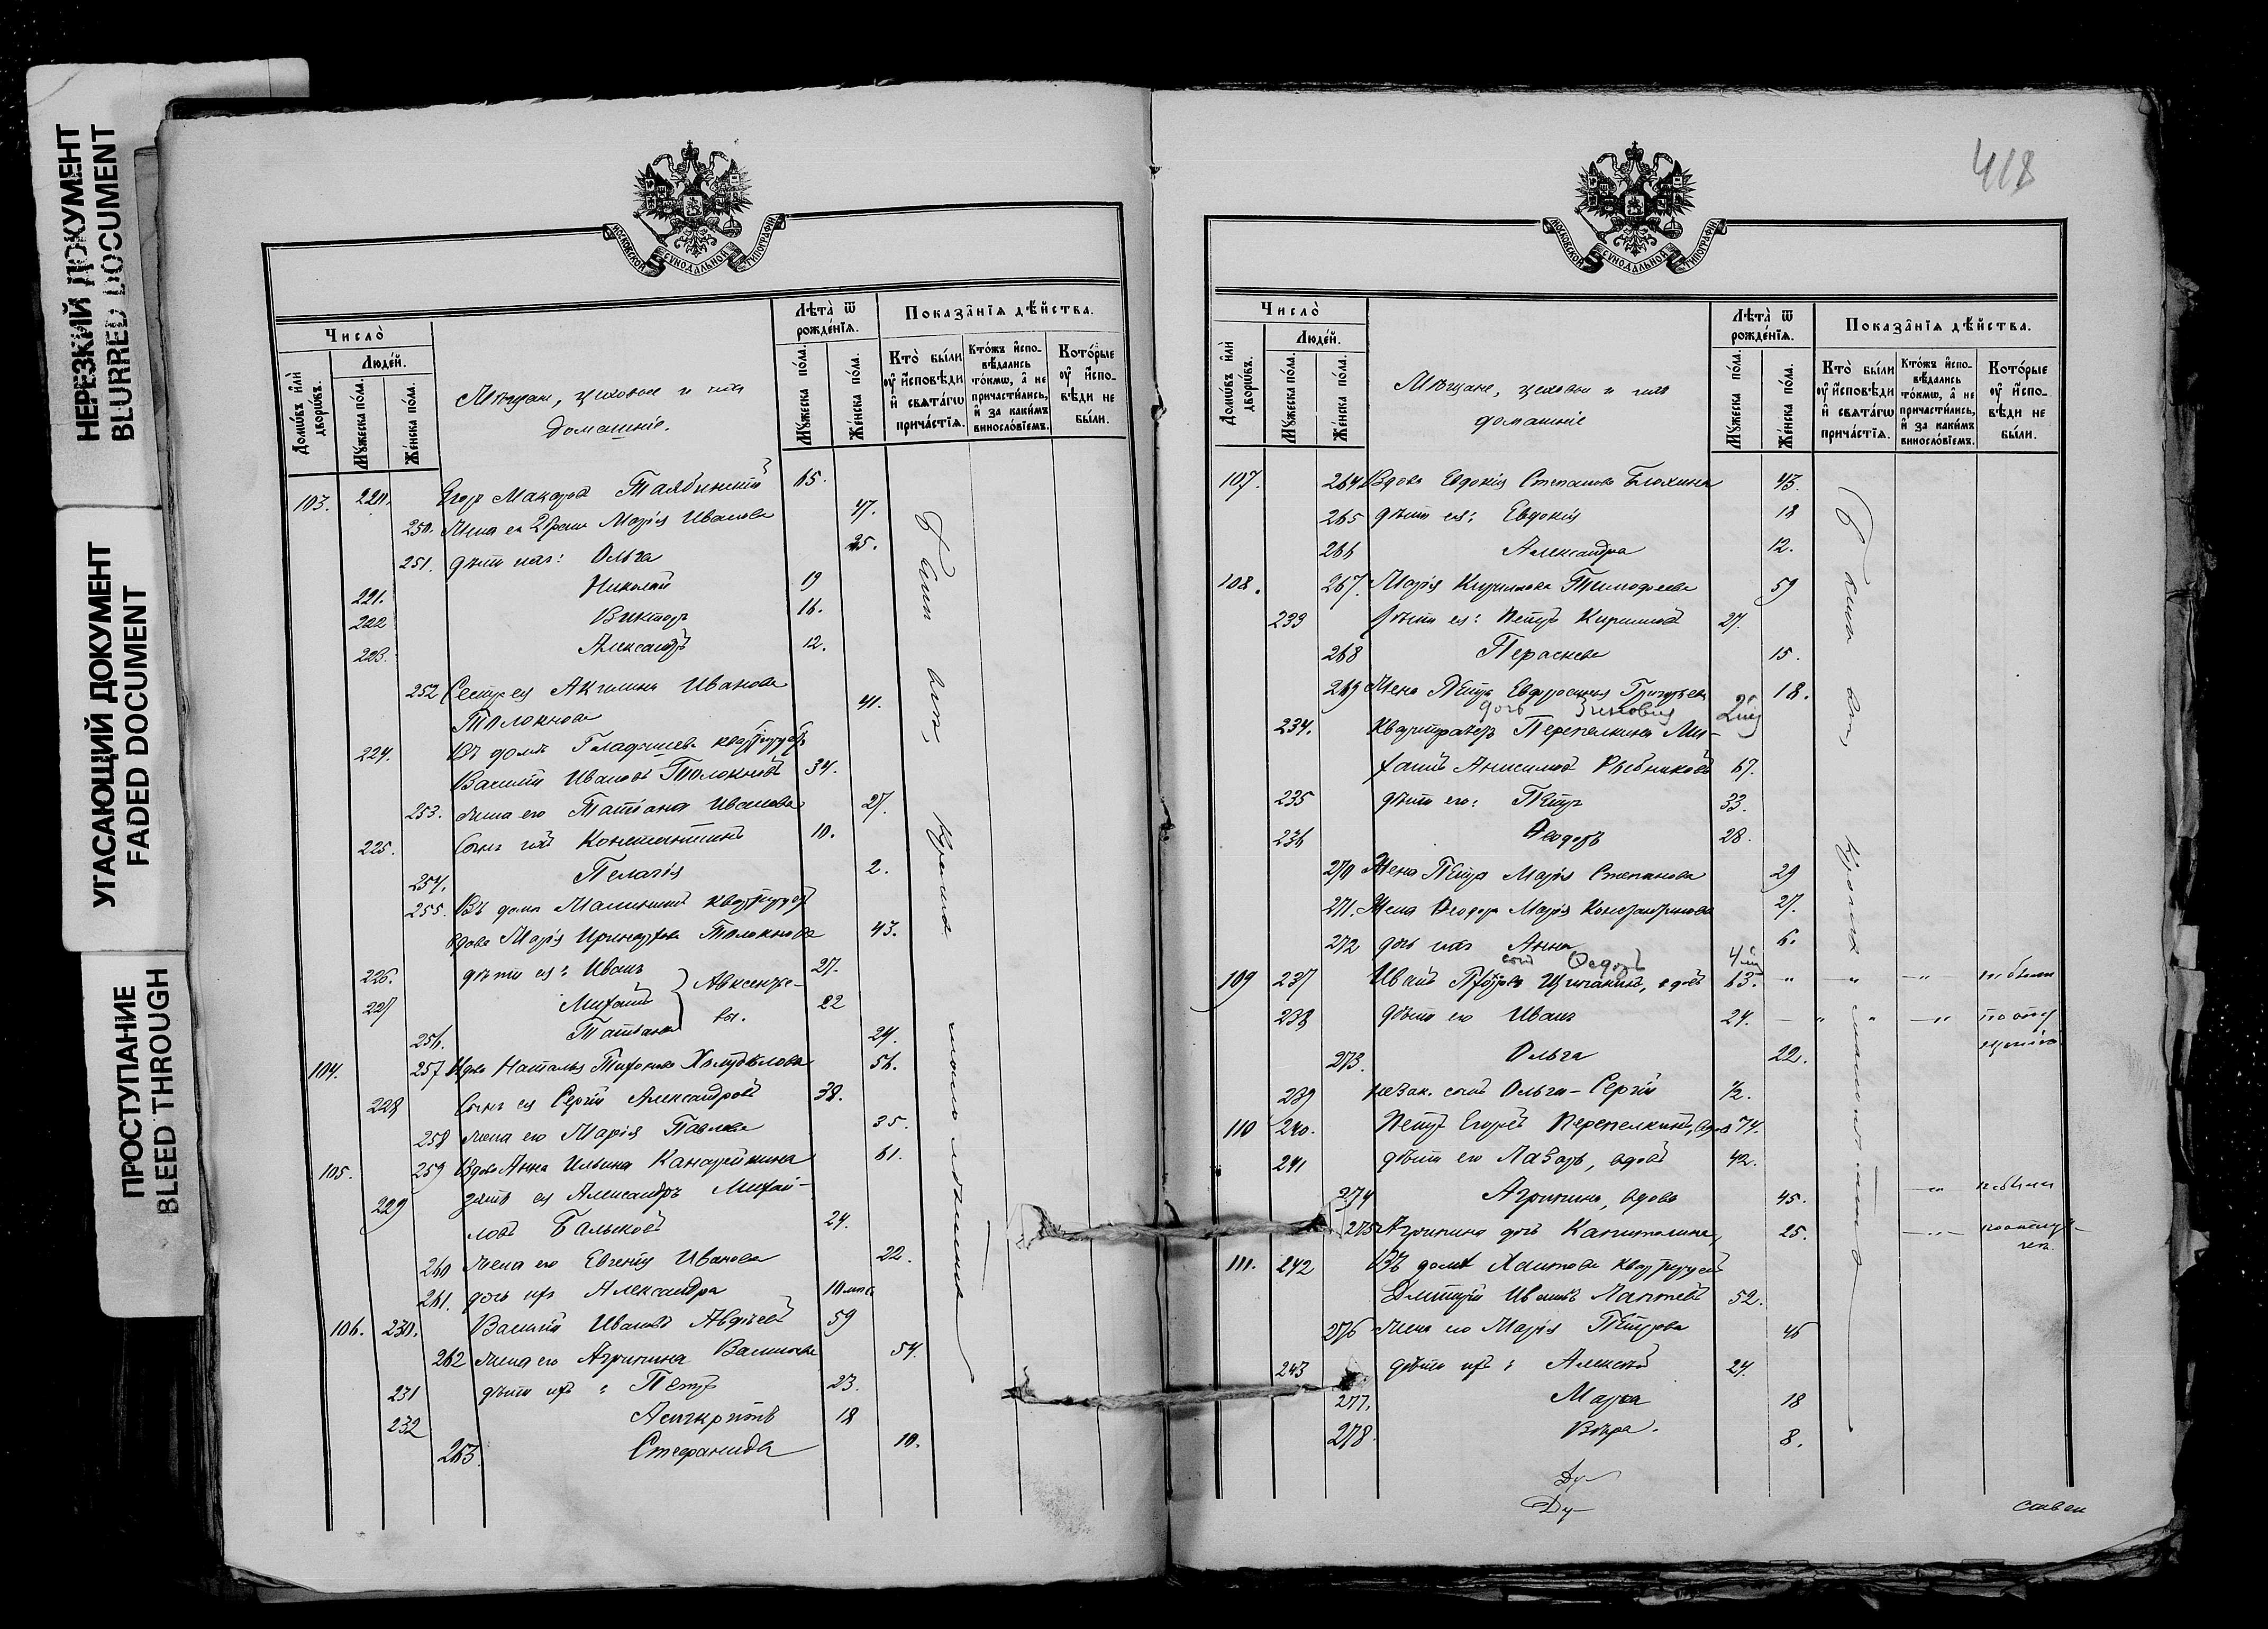 НЕРЕЗКИЙ ДОКУМЕНТ
BLURRED DOCUMENT
УГАСАЮЩИЙ ДОКУМЕНТ
FADED DOCUMENT
ПРОСТУПАНИЕ
BLEED THROUGH
МОСКОВСКОЙ СѴНОДАЛЬНОЙ ТИПОГРАФІИ
Число̀
Люде́й.
Домѡ́въ и҆лѝ дворѡ́въ.
Мꙋ́жеска по́ла.
Же́нска по́ла.
Мѣщане, цеховые и ихъ
домашніе.
Лѣта̀ ѿ рожде́нїѧ.
Мꙋ́жеска по́ла.
Же́нска по́ла.
Показа̂нїѧ дѣ́йства.
Кто̀ бы́ли ᲂу҆ и҆сповѣ́ди и҆ свѧта́гѡ прича́стїѧ.
Кто́жъ и҆сповѣ́дались то́кмѡ, а҆ не причасти́лись, и҆ за каки́мъ винослові́емъ.
Кото́рые ᲂу҆ и҆сповѣ́ди не бы́ли.
103. 220. Егоръ Макаровъ 65.
250. Жена ея 2 брака Марія Иванова 47.
251. дѣти ихъ: Ольга 25.
221. Николай 19
222 Викторъ 16.
223. Александръ 12.
252 Сестра ея Акилина Иванова
Толокнова 41.
224. Въ домѣ Гладышева квартируетъ
Василій Ивановъ Толокновъ 34.
253. жена его Татіана Иванова 27.
225. Сынъ ихъ Константинъ 10.
254. Пелагія 2.
255. Въ домѣ квартируетъ
вдова Марія Толокнова 43.
226. дѣти ея: Иванъ 27.
227 Михаилъ Авксентьевы. 22
256. Татіана 24.
104. 257 Вдова Наталья Тихонова 56.
228 Сынъ ея Сергій Александровъ 38.
258 жена его Марія Павлова 35.
105. 259 Вдова Анна Ильина Канарейкина 61.
229 зять ея Александръ Михай-
ловъ Балыковъ 24.
260 жена его Евгенія Иванова 22.
261. дочь ихъ Александра 10 мѣс
106. 230. Василій Ивановъ Авдѣевъ 59
262 жена его Агрипина Васильева 54.
231 дѣти ихъ: Петръ 23.
232 Асигкритъ 18
263. Стефанида 10.
Были всѣ, кромѣ малолѣтнихъ
418
МОСКОВСКОЙ СѴНОДАЛЬНОЙ ТИПОГРАФІИ
Число̀
Люде́й.
Домѡ́въ и҆лѝ дворѡ́въ.
Мꙋ́жеска по́ла.
Же́нска по́ла.
Мѣщане, цеховые и ихъ
домашніе
Лѣта̀ ѿ рожде́нїѧ.
Мꙋ́жеска по́ла.
Же́нска по́ла.
Показа̂нїѧ дѣ́йства.
Кто̀ бы́ли ᲂу҆ и҆сповѣ́ди и҆ свѧта́гѡ прича́стїѧ.
Кто́жъ и҆сповѣ́дались то́кмѡ, а҆ не причасти́лись, и҆ за каки́мъ винослові́емъ.
Кото́рые ᲂу҆ и҆сповѣ́ди не бы́ли.
107. 264 Вдова Евдокія Степанова Блохина 43.
265 дѣти ея: Евдокія 18
266 Александра 12.
108. 267. Марія Кирилова Тимофеева 59
233 Дѣти ея: Петръ Кириловъ 27.
268 Пераскева 15.
269 Жена Петра Евфросинія Григорьева 18.
дочь Зиновія
234. Квартираторъ Перепелкина Ми-
хаилъ Анисимовъ Рыбниковъ 67.
235 дѣти его: Петръ 33.
236 Ѳеодоръ 28.
270 Жена Петра Марія Степанова 29
271. Жена Ѳеодора Марія Константинова 27.
272 дочь ихъ Анна 6.
сынъ Ѳедоръ
109 237 Иванъ Петровъ Цыганкинъ, вдовъ 63. не были
238 дѣти его Иванъ 24. по отлу
273. Ольга 22.
239 незак. сынъ Ольги - Сергій 1/2.
110 240. Петръ Егоровъ Перепелкинъ, вдовъ 74.
241 дѣти его Лазарь, вдовъ 42.
274 Агрипина, вдова 45. не были
275 Агрипины дочь Капитолина, 25.
111. 242 Въ домѣ квартируетъ
Дмитрій Ивановъ Лаптевъ 52.
276 жена его Марія Петрова 46
243 дѣти ихъ: Алексѣй 24.
277. Марѳа 18
278. Вѣра. 8.
Были всѣ, кромѣ малолѣтнихъ
Ду-
Ду-